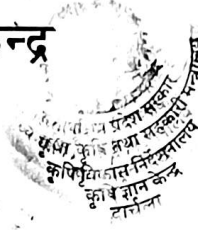 न्द्र
प्रदेश सरकार
कृषि तथा सहकारी मन्त्रालय
कृषि विकास निर्देशनालय
कृषि ज्ञान केन्द्र
दार्चुला